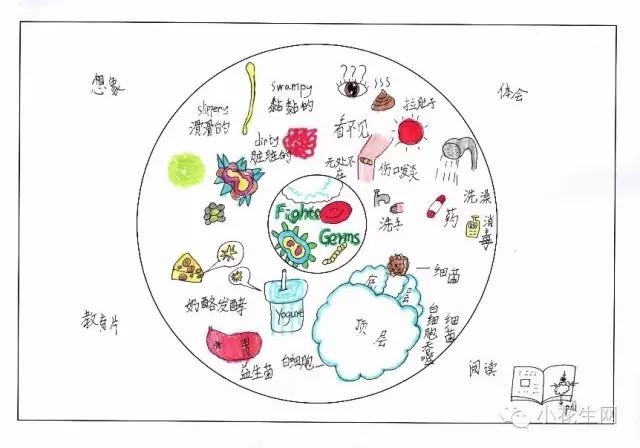 想象
体会
slippery
滑滑的
swampy
黏黏的
dirty
脏脏的
???
sss
看不见
拉肚子
无处不
在
伤口发炎
洗澡
洗手
药
消毒
Fights
Germs
细菌
奶酪发酵
Yogurt
底层
顶层
白细胞吞噬
细菌
益生菌
白细胞
教育片
阅读
小花生网